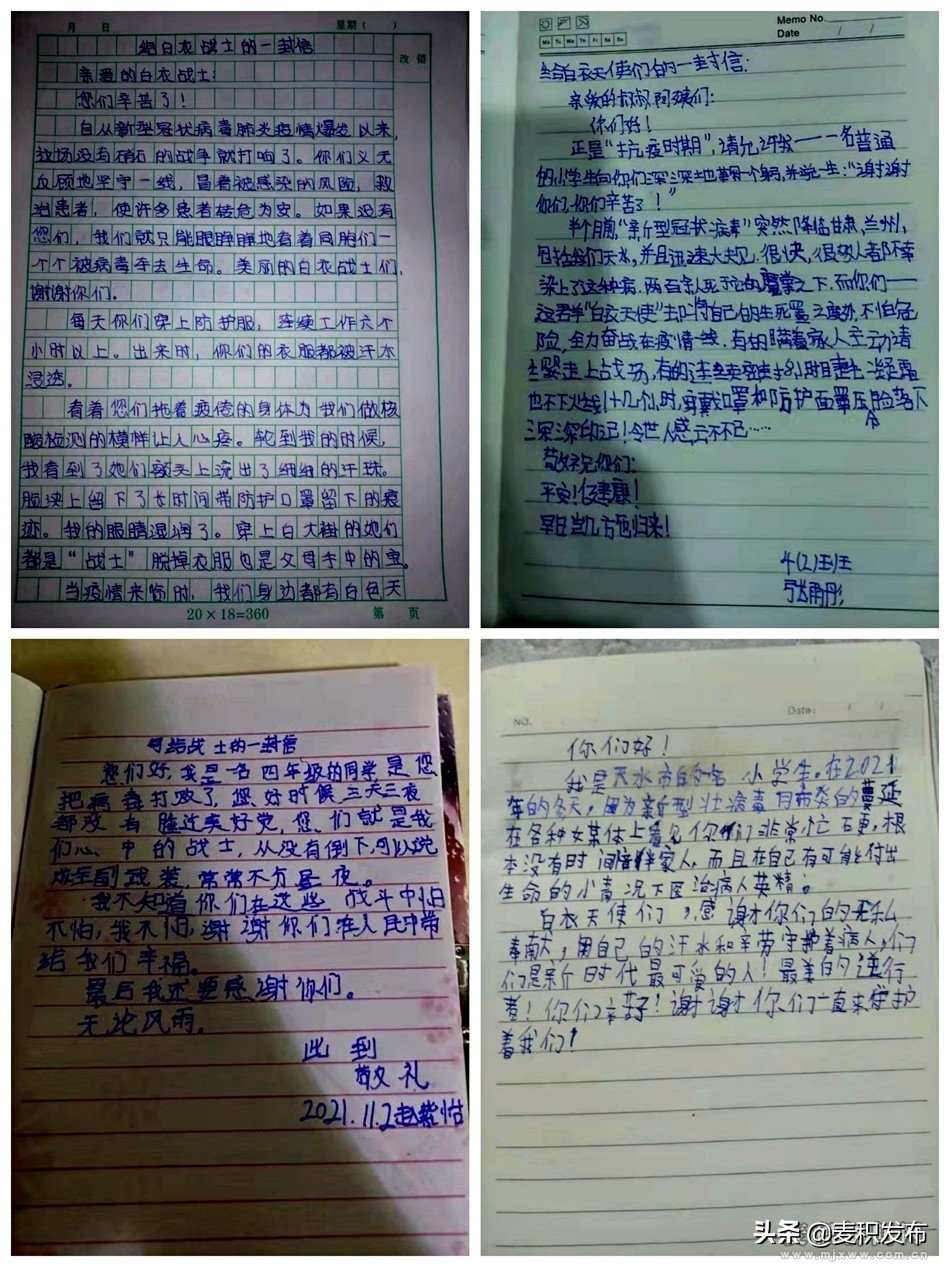 月 日 星期（ ）
给白衣战士的一封信
改错
亲爱的白衣战士：
您们辛苦了！
自从新型冠状病毒肺炎疫情爆发以来，
这场没有硝石的战争就打响了。你们义无
反顾地坚守一线，冒着被感染的风险，救
治患者，使许多患者转危为安。如果没有
您们，我们就只能眼睁睁地看着同胞们一
个个被病毒夺去生命。美丽的白衣战士们，
谢谢你们。
每天你们穿上防护服，连续工作六个
小时以上。出来时，你们的衣服都被汗水
浸透。
看着您们拖着疲倦的身体为我们做核
酸检测的模样让人心疼。轮到我的时候，
我看到了她们额头上流出了细细的汗珠。
脸颊上留下了长时间带防护口罩留下的痕
迹。我的眼睛湿润了。穿上白大褂的她们
都是“战士”脱掉衣服也是父母手中的宝。
当疫情来临时，我们身边都有白色天
20×18=360 第 页
Memo No.
Mo Tu We Th Fr Sa Su
Date / /
给白衣天使们的一封信：
亲爱的叔叔阿姨们：
你们好！
正是“抗疫时期”，请允许我——一名普通
的小学生向你们深深地鞠一个躬，并说一生：“谢谢
你们，你们辛苦了！”
半个月前“新型冠状病毒”突然降临甘肃，兰州，
包括我们天水，并且迅速大。很快，很多人都不幸
染上了这种病，两百余人死于它的魔掌之下，而你们——
这群“白衣天使”却将自己的生死置之度外，不怕危
险，全力奋战在疫情一线，有的瞒着家人主动请
缨走上战场，有的连
也不下火线！十几个小时，穿戴口罩和防护面罩压脸落下
深深印记！令世人感云不已……
敬祝你们：
平安！健康！
早日当几方包归来！
4(2)班
张雨彤
写给战士的一封信
您们好，我是一名四年级的同学，是您
把病毒打败了，您好时候三天三夜
都没有睡过美好觉，您们就是我
们心中的战士，从没有倒下，可以说
全副武装，常常不负昼夜。
我不知道你们在这些战斗中怕
不怕，我不怕，谢谢你们在人民中带
给我们幸福。
最后我还要感谢你们。
无论风雨。
此到
敬礼
2021.11.2赵紫怡
NO.
Date: / /
你们好！
我是天水市的一名小学生。在2021
年的冬天，因为新型壮病毒肺炎的蔓延
在各种媒体上看见你们非常忙石更，根
本没有时间陪伴家人，而且在自己有可能付出
生命的小情况下医治病人英精。
白衣天使们，感谢你们的无私
奉献，用自己的汗水和辛劳守护着病人，们
们是新时代最可爱的人！最美的逆行
者！你们辛苦！谢谢你们一直来守护
着我们！
头条@麦积发布
www.mjxww.com.cn